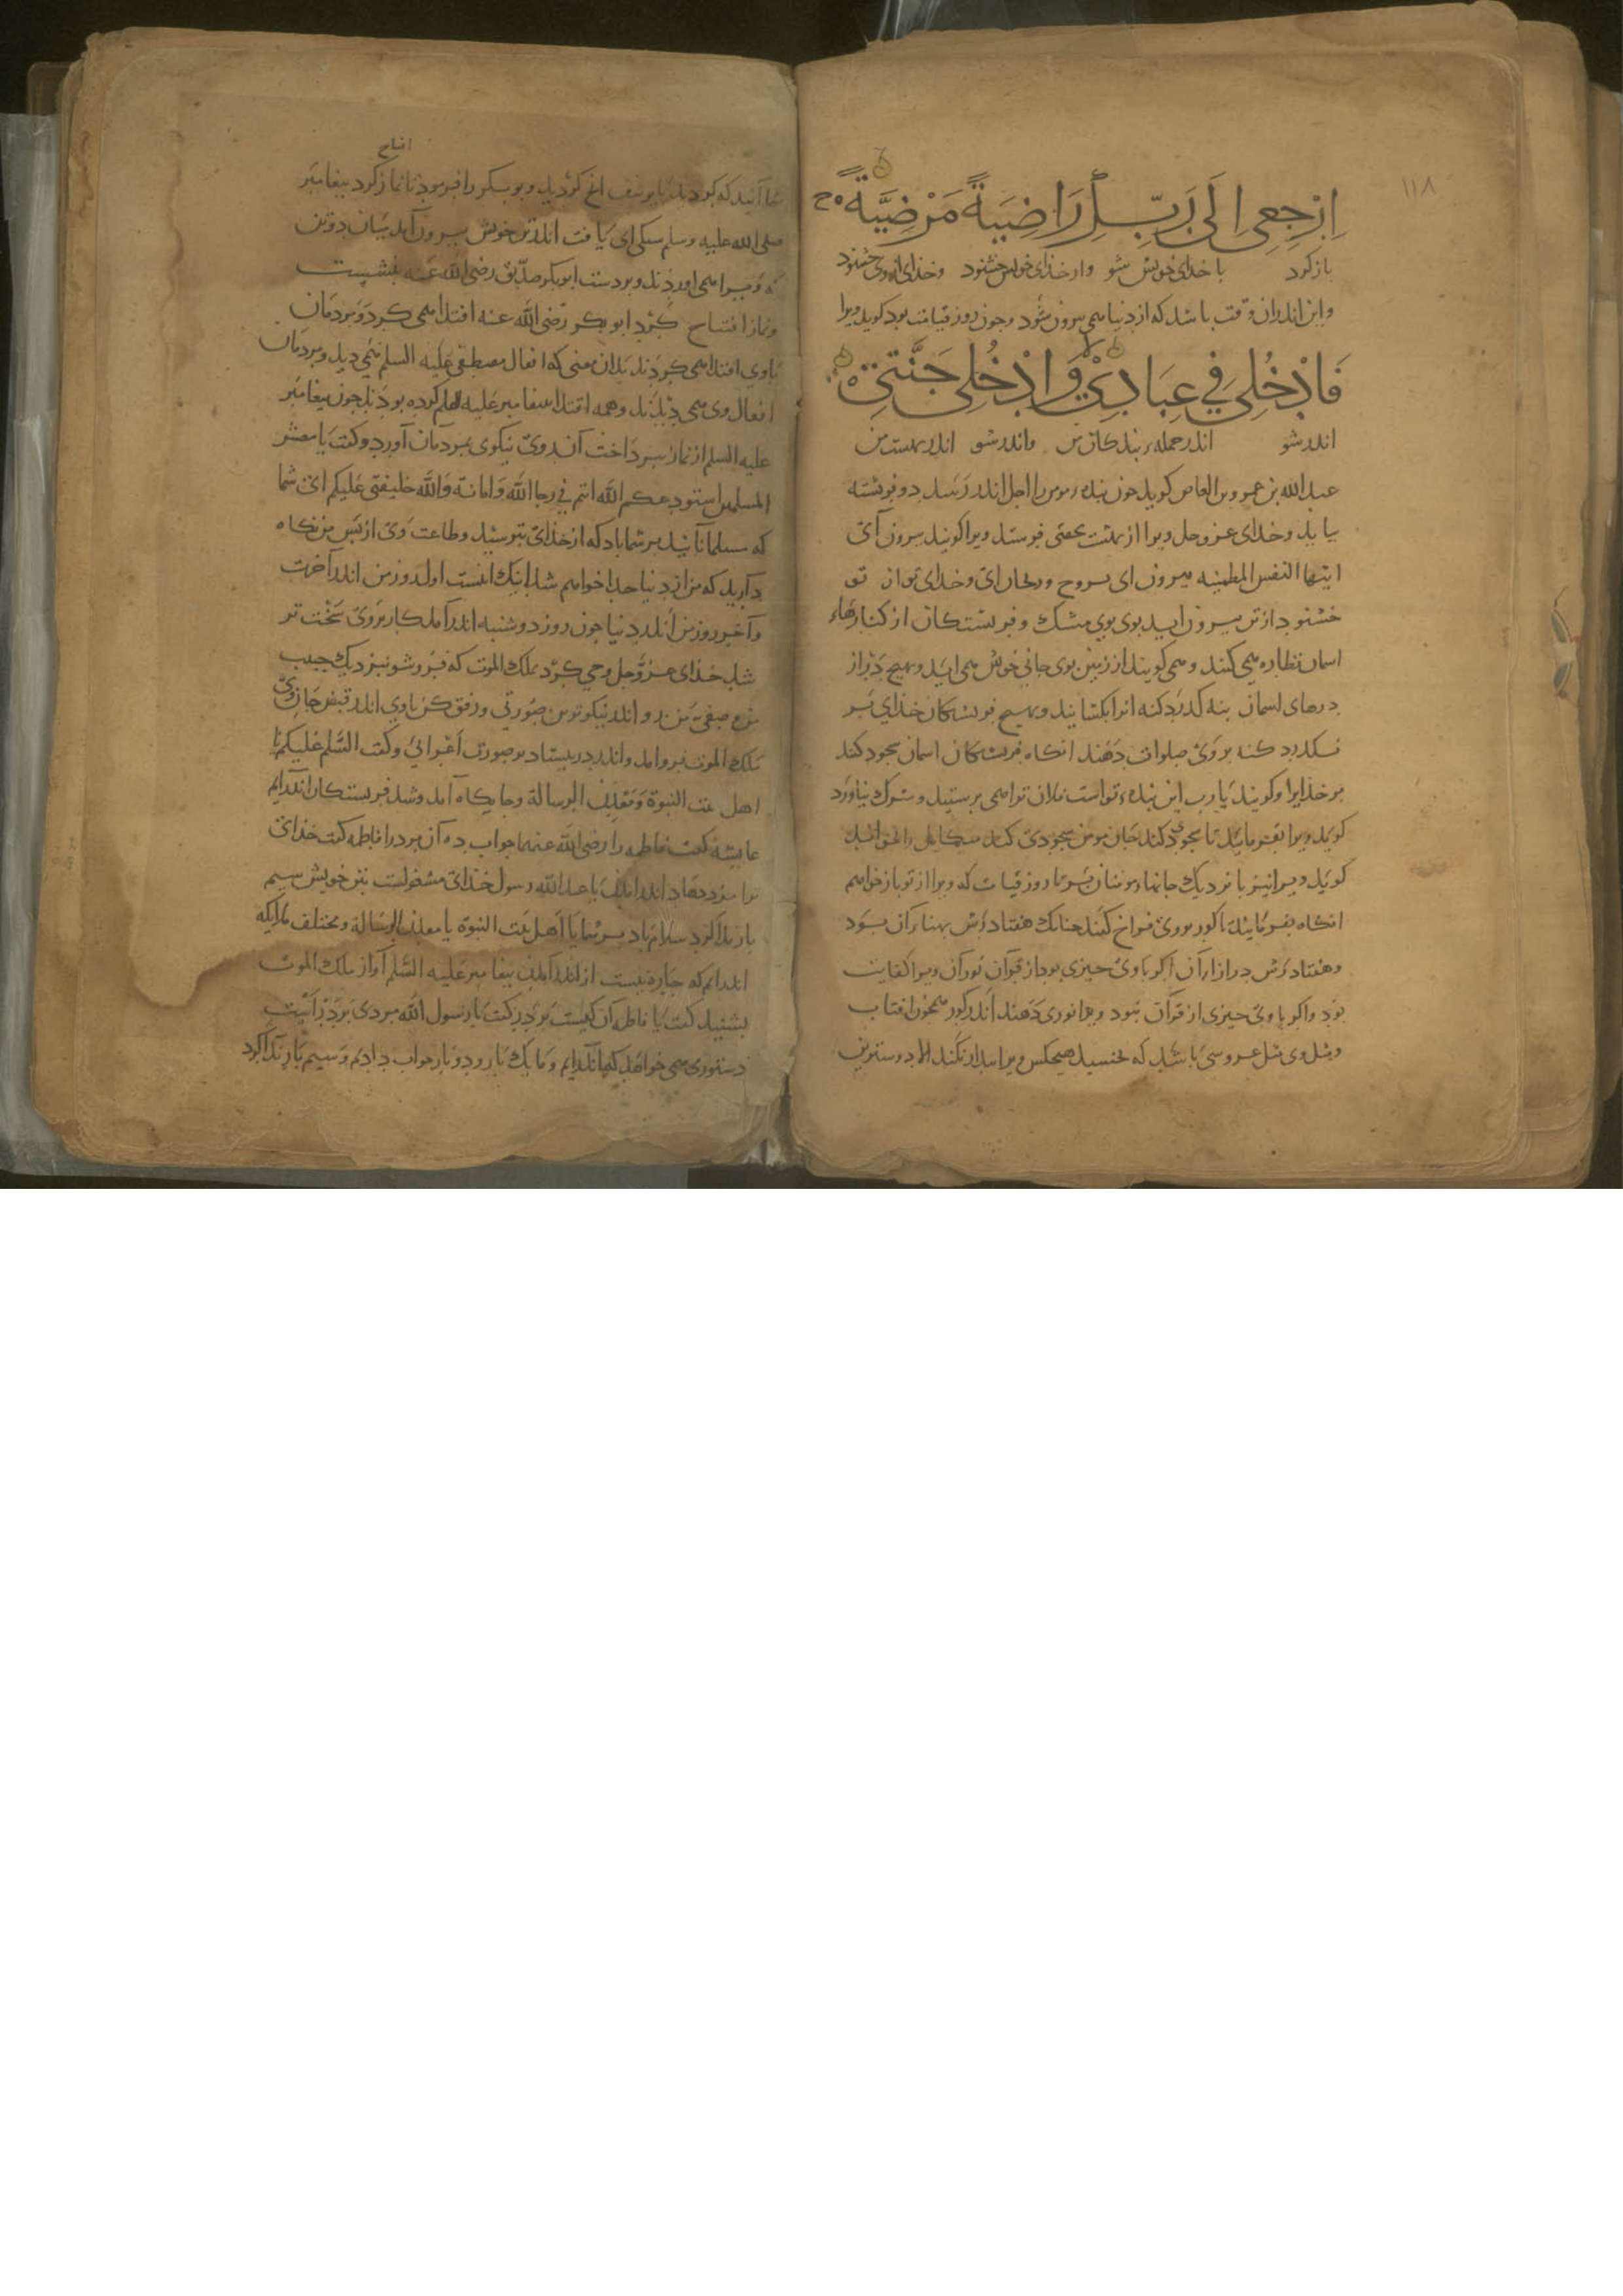 ١١٨
اِرْجِعِی اِلَی رَبِّكِ رَاضِیَةً مَرْضِیَّةً
بازکرد با خدای خویش شو وار خدای خویش خشنود وخدای از وی خشنود
واین اندران وقت باشد که ازدنیا همی بیرون شود وجون روز قیامت بود کوید ویرا
فَادْخُلِی فِی عِبَادِیْ وَادْخُلِی جَنَّتِیْ
اندر شو اندر جمله بندکان من واندر شو اندر بهشت من
عبد الله بن عمرو بن العاص کوید جون بنده مومن را اجل اندر رسد دو فریشته
بیاید وخدای عز وجل ویرا از بهشت تحفتی فرستد ویرا کویند بیرون آی
ایتها النفس المطمئنه بیرون ای بروح وریحان ای وخدای تو از تو
خشنود ازتن بیرون اید بوی بوی مشک و فریشتکان از کنارهاء
اسمان نظاره همی کنند و همی کویند از زمین بوی جانی خوش همی اید وبهیج در از
درهای اسمان بنه کدرد کنه انرا بکشایند وبهیج فریشتکان خدای بر
نکدرد کنه بروی صلوات دهند انکاه فریشتکان اسمان سجود کنند
مر خدایرا وکویند یا رب این بنده تو است فلان ترا همی پرستید وشرک نیاورد
کوید ویرا بفرمایید تا سجود کند جان مومن سجودی کند میکاییل را
کوید ویرا نیز با نزدیک جانهاء مومنان بر تا روز قیامت که ویرا از تو باز خواهم
انکاه بفرمایند تا کور بروی فراخ کنند جنانک هفتاد رش بهناء آن بود
وهفتاد رش درازاء آن اکر باوی جیزی بود از قرآن نور آن ویرا کفایت
بود واکر با وی جیزی از قرآن نبود ویرا نوری دهند اندر کور همجون افتاب
ومثل وی مثل عروسی باشد که بخسبد هیجکس ویرا بیدار نکند الا دوسترین
افتتاح
شما آنید که کردید با یوسف انج کردید وبوبکر را فرمود تا نماز کرد بیغامبر
صلی الله علیه وسلم سبکی ای یافت اندر تن خویش بیرون آمد میان دو تن
که ویرا همی اوردند وبر دست ابوبکر صدیق رضی الله عنه بنشست
ونماز افتتاح کرد ابو بکر رضی الله عنه اقتدا همی کرد ومردمان
باوی اقتدا همی کردند بدان معنی که افعال مصطفی علیه السلم نمی دید ومردمان
افعال وی همی دیدند وهمه اقتدا به بیغامبر علیه السلم کرده بودند جون بیغامبر
علیه السلم از نماز ببرداخت آن روی نیکوی بمردمان آورد وکفت یا معشر
المسلمین استودعکم الله انتم فی رجا الله وامانة والله خلیفتی علیکم ای شما
که مسلمانانید بر شما باد که از خدای بترسید وطاعت وی از پس من نکاه
دارید که من از دنیا جدا خواهم شد اینک انست اول روز من اندر آخرت
وآخر روز من اندر دنیا جون روز دوشنبه اندر آمد کار بروی سخت تر
شد خدای عز وجل وحی کرد بملک الموت که فرو شو نزدیک حبیب
من وصفی من در اندر نیکوترین صورتی ورفق کن باوی اندر قبض جان وی
ملک الموت فرو امد واندر در بیستاد بر صورت اعرابی وکفت السلم علیکم یا
اهل بیت النبوة ومعدن الرسالة وجایکاه آمد وشد فریستکان اندر آیم
عایشه کفت فاطمه را رضی الله عنهما جواب ده آن مرد را فاطمه کفت خدای
ترا مزد دهاد اندر آمدن یا عبد الله رسول خدای مشغولست بتن خویش سیم
بار ندا کرد سلام باد بر شما یا اهل بیت النبوة یا معدن الرسالة ومختلف ملایکه
اندرایم که جاره نیست از اندر آمدن بیغامبر علیه السلم آواز ملک الموت
بشنید کفت یا فاطمه آن کیست بر در کفت یا رسول الله مردی بر در است
دستوری همی خواهد که اندر آیم وما یک بار ودو بار جواب دادیم وسیم بار ندا کرد